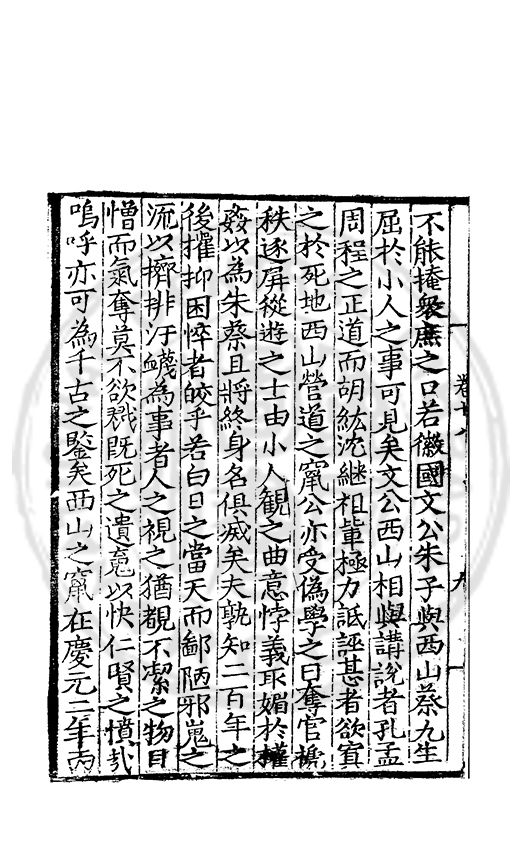 不能掩衆庶之口若徽國文公朱子與西山蔡九生
屈於小人之事可見矣文公西山相與講說者孔孟
周程之正道而胡紘沈繼祖軰極力詆誣甚者欲寘
之於死地西山營道之竄公亦受偽學之目奪官褫
秩逐屏從遊之士由小人觀之曲意悖義取媚於權
姦以為朱蔡且將終身名俱滅矣夫孰知二百年之
後摧抑困悴者皎乎若白日之當天而鄙陋邪嵬之
流以擠排汙衊為事者人之視之猶覩不潔之物目
憎而氣奪莫不欲戮既死之遺鬼以快仁賢之憤哉
嗚呼亦可為千古之鑒矣西山之竄在慶元二年丙
卷廿八
九